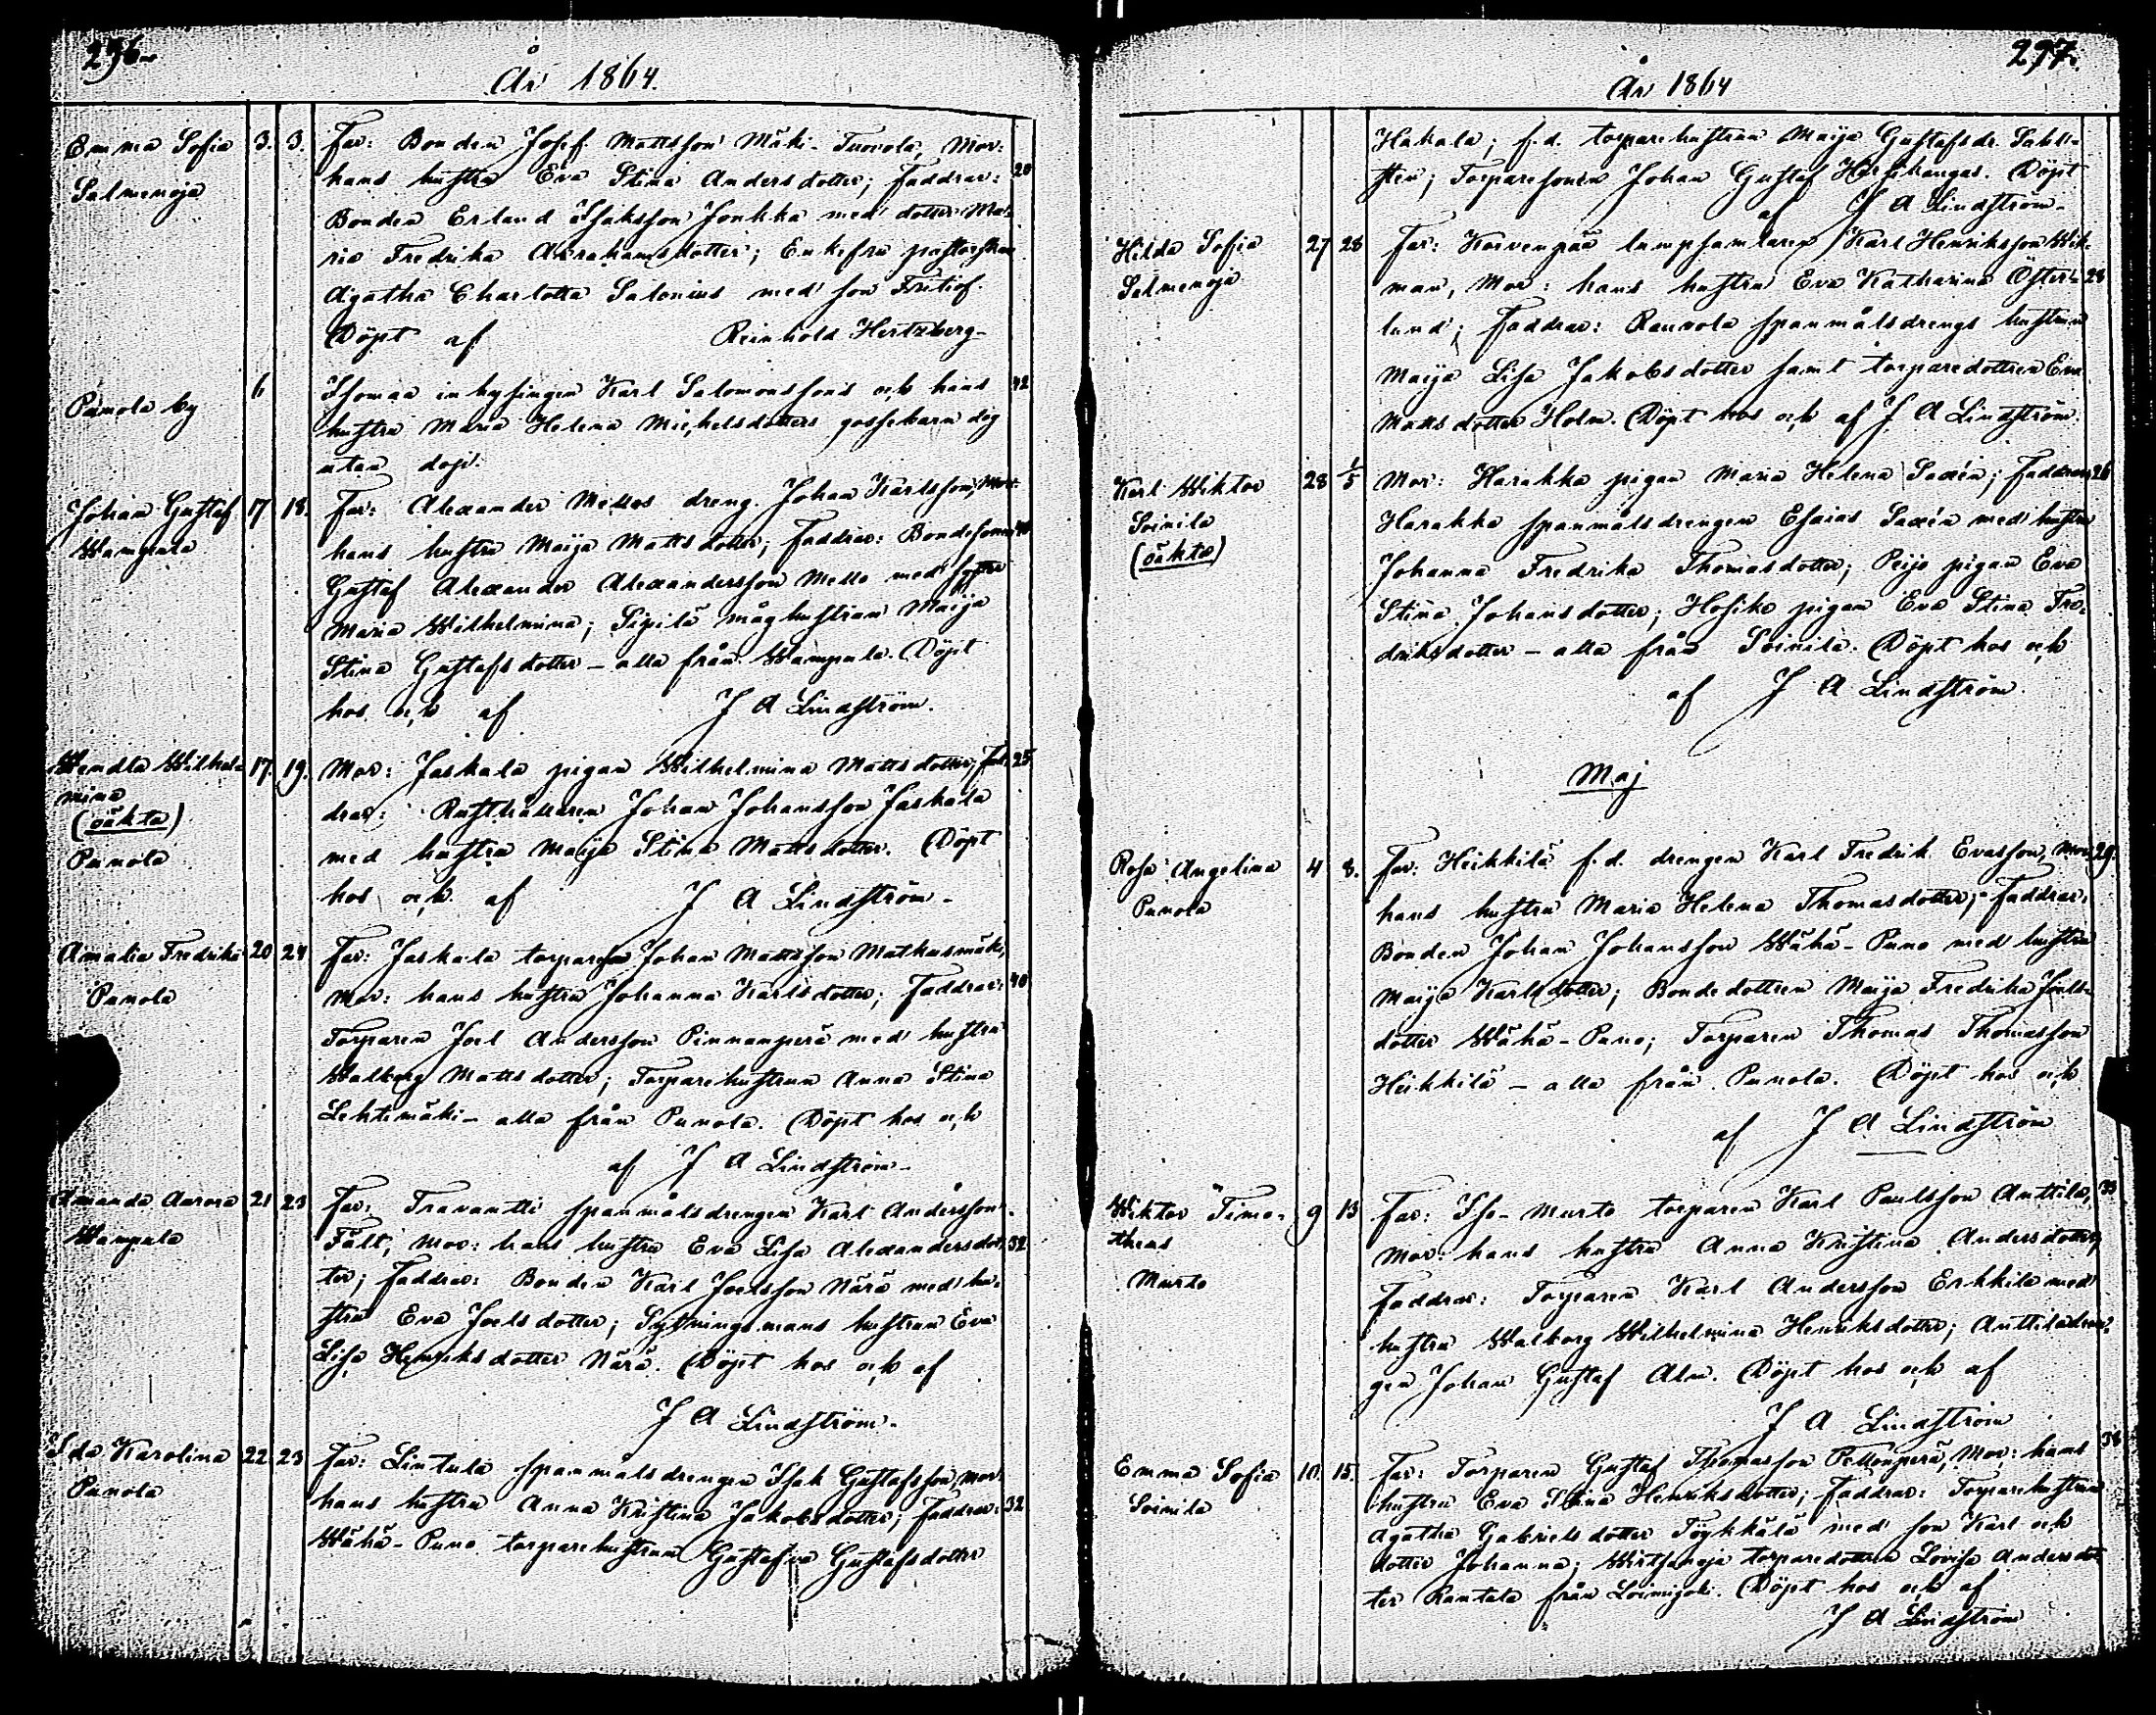 296.
År 1864.
Emma Sofia 3. 3. Far: Bonden Josef Mattsson Mäki-Tuovola, Mor:
Salmenoja hans hustru Eva Stina Andersdotter; Faddrar: 20
Bonden Erland Isaksson Jonkka med dotter Ma-
ria Fredrika Abrahamsdotter; Enkefru pastorskan
Agatha Charlotta Salonius med son Fritiof.
Döpt af Reinhold Hertzberg
Punola by 6 inhysingen Karl Salomonssons och hans 42
hustru Maria Helena Michelsdotters gossebarn dog
utan dop.
Johan Gustaf 17 18. Far: Alexander Mellos dreng Johan Karlsson, Mor:
Wampula hans hustru Maija Mattsdotter; Faddrar: Bondesonen 40
Gustaf Alexander Alexandersson Mello med syster
Maria Wilhelmina; Sipilä måghustrun Maija
Stina Gustafsdotter – alla från Wampula. Döpt
hos och af J A Lindström.
Wendla Wilhel- 17. 19. Mor: Jaskala pigan Wilhelmina Mattsdotter; Fad- 25
mina
(oäkta) drar: Rusthållaren Johan Johansson Jaskala
Punola med hustru Maija Stina Mattsdotter. Döpt
hos och af J A Lindström.
Amalia Fredrika 20 24 Far: Jaskala torparen Johan Mattsson Matkusmäki,
Punola Mor: hans hustru Johanna Karlsdotter; Faddrar: 40
Torparen Joel Andersson Pinnanperä med hustru
Walborg Mattsdotter; Torparehustrun Anna Stina
Lehtimäki – alla från Punola. Döpt hos och
af J A Lindström.
Amanda Aurora 21 23 Far: Travantti spanmålsdrengen Karl Andersson
Wampula Fält, Mor: hans hustru Eva Lisa Alexandersdot- 32
ter; Faddrar: Bonden Karl Joelsson Närä med hu-
stru Eva Joelsdotter; Sytningsmans hustrun Eva
Lisa Henriksdotter Närä. Döpt hos och af
J A Lindström.
Ida Karolina 22. 23 Far: Lintula spanmålsdrengen Isak Gustafsson, Mor:
Punola hans hustru Anna Kristina Jakobsdotter; Faddrar: 32
Wähä-Puno torparehustrun Gustafva Gustafsdotter
297.
År 1864
Hakala; f.d. torparehustrun Maija Gustafsdr.
Torparesonen Johan Gustaf Hirsikangas. Döpt
af J A Lindström.
Hilda Sofia 27 28 Far: Korvenpää lumpsamlaren Karl Henriksson Wik-
Salmenoja man, Mor: hans hustru Eva Katharina Öster- 28
lund; Faddrar: Rauvola spanmålsdrengs hustrun
Maija Lisa Jakobsdotter samt torparedottren Eva
Mattsdotter Holm. Döpt hos och af J A Lindström.
Karl Wiktor 28 1/5 Mor: Harakka pigan Maria Helena Saxén; Faddrar: 26
Soinila Harakka spanmålsdrengen Esaias Saxén med hustru
(oäkta) Johanna Fredrika Thomasdotter; Peijo pigan Eva
Stina Johansdotter; Hosike pigan Eva Stina Fre-
driksdotter – alla från Soinila. Döpt hos och
af J A Lindström.
Maj
Rosa Angelina 4 8. Far: Heikkilä f.d. drengen Karl Fredrik Evasson, Mor: 29.
Punola hans hustru Maria Helena Thomasdotter; Faddrar:
Bonden Johan Johansson Wähä-Puno med hustru
Maija Karlsdotter; Bondedottren Maija Fredrika Joels-
dotter Wähä-Puno; Torparen Thomas Thomasson
Heikkilä – alla från Punola. Döpt hos och
af J A Lindström
Wiktor Timo- 9 13 Far: Iso-Murto torparen Karl Paulsson Anttila, 33
theus Mor: hans hustru Anna Kristina Andersdotter;
Murto Faddrar: Torparen Karl Andersson Erkkilä med
hustru Walborg Wilhelmina Henriksdotter; Anttila dren-
gen Johan Gustaf Alm. Döpt hos och af
J A Lindström
Emma Sofia 10. 15. Far: Torparen Gustaf Thomasson Peltonperä, Mor: hans 38
Soinila hustru Eva Stina Henriksdotter; Faddrar: Torparehustrun
Agatha Gabrielsdotter Töykkälä med son Karl och
dotter Johanna; Wirtsanoja torparedottren Lovisa Andersdot-
ter Rantala från Loimijoki. Döpt hos och af
J A Lindström